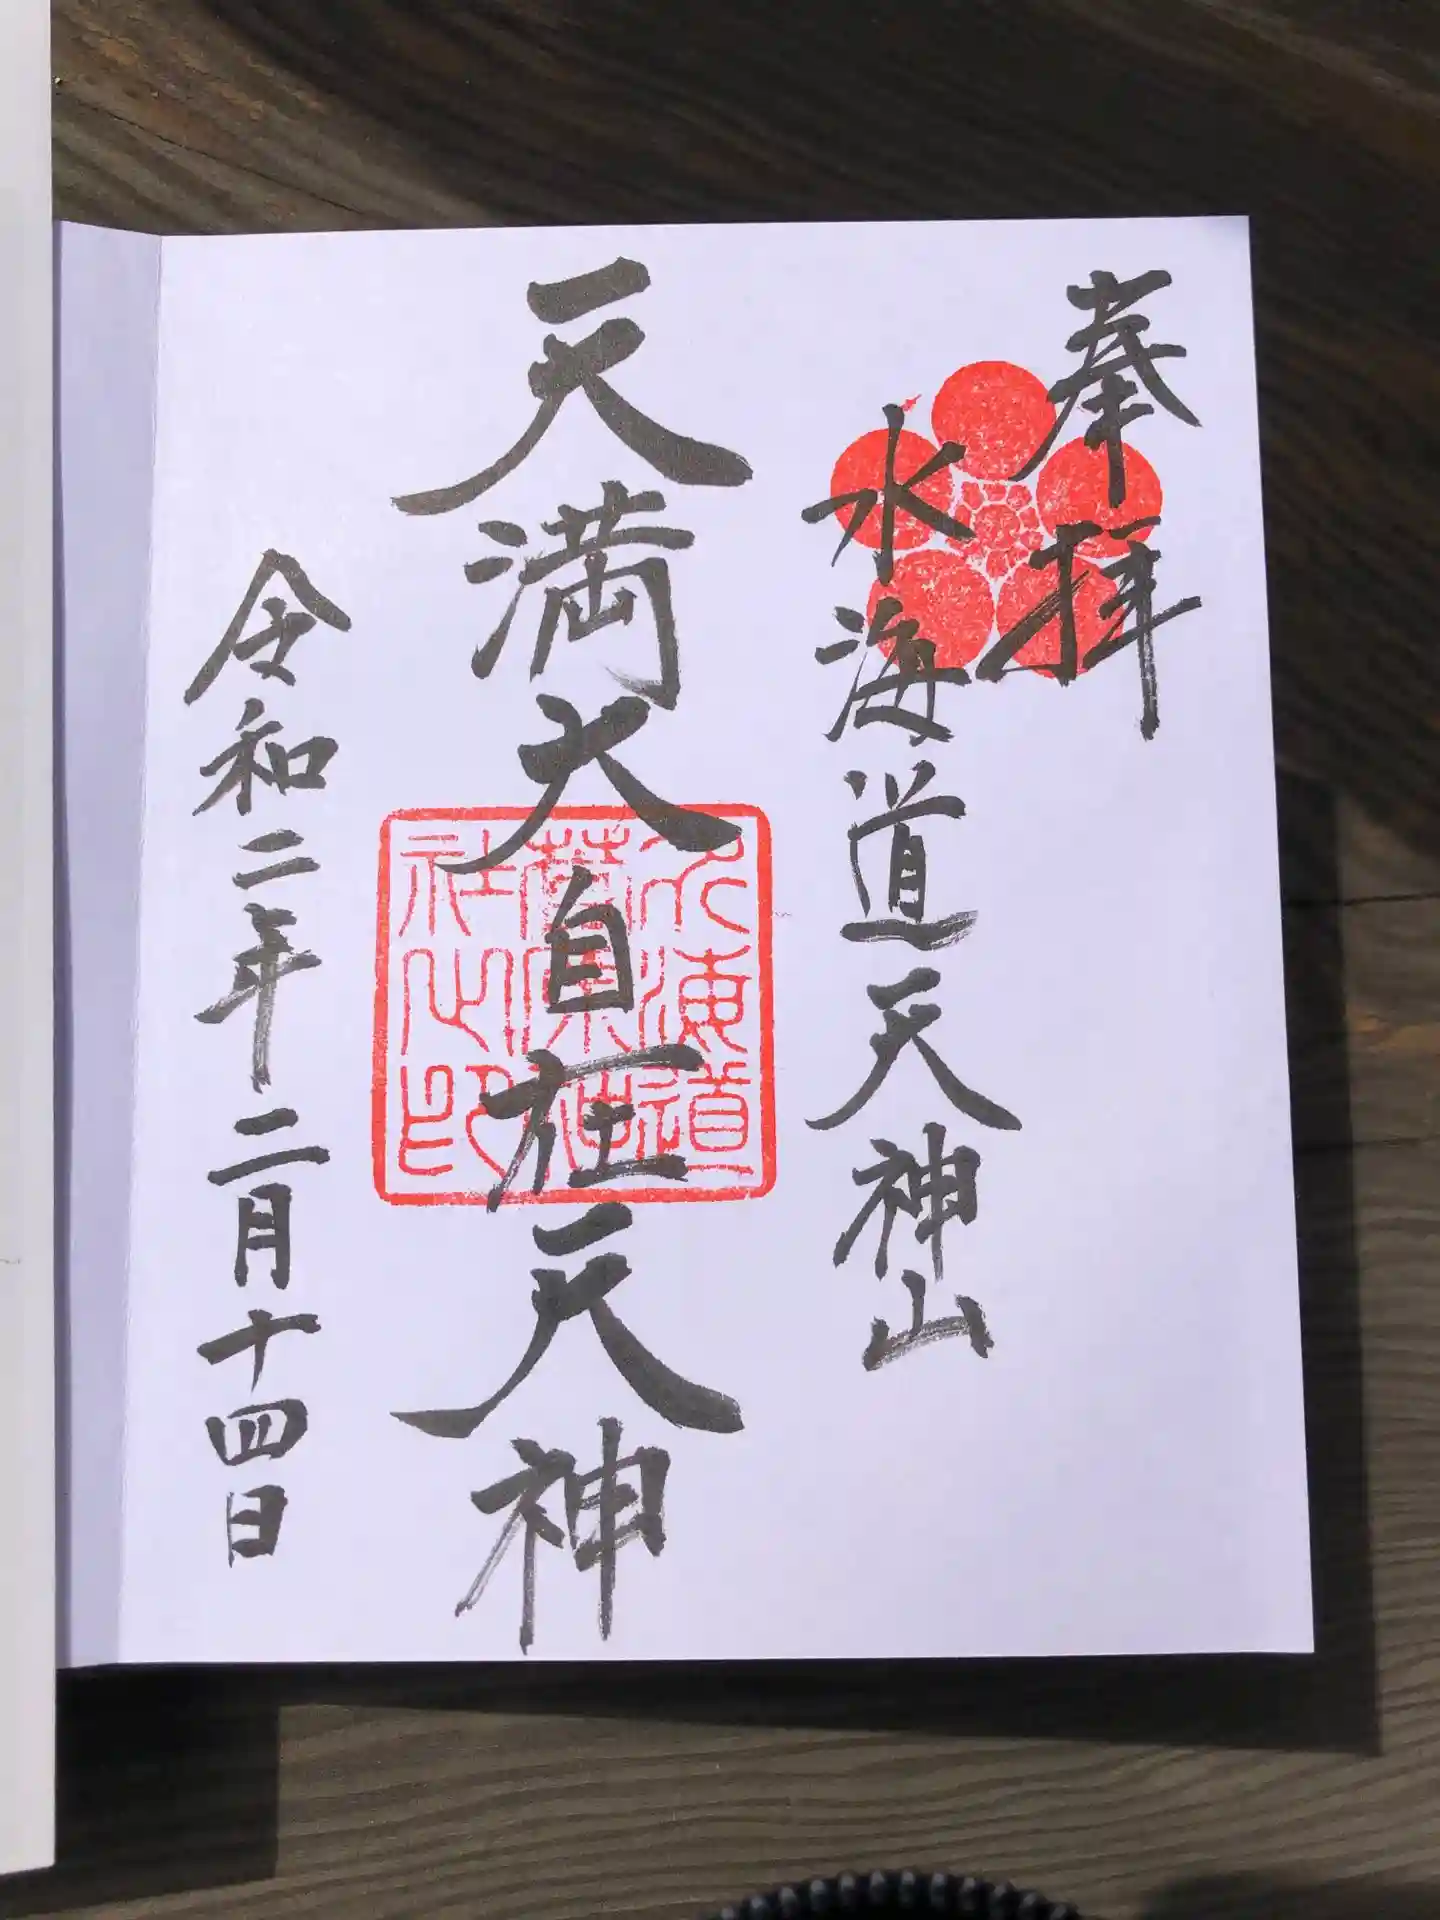 奉拝
水海道天神山
天満大自在天神
水海道
社之印
令和二年二月十四日